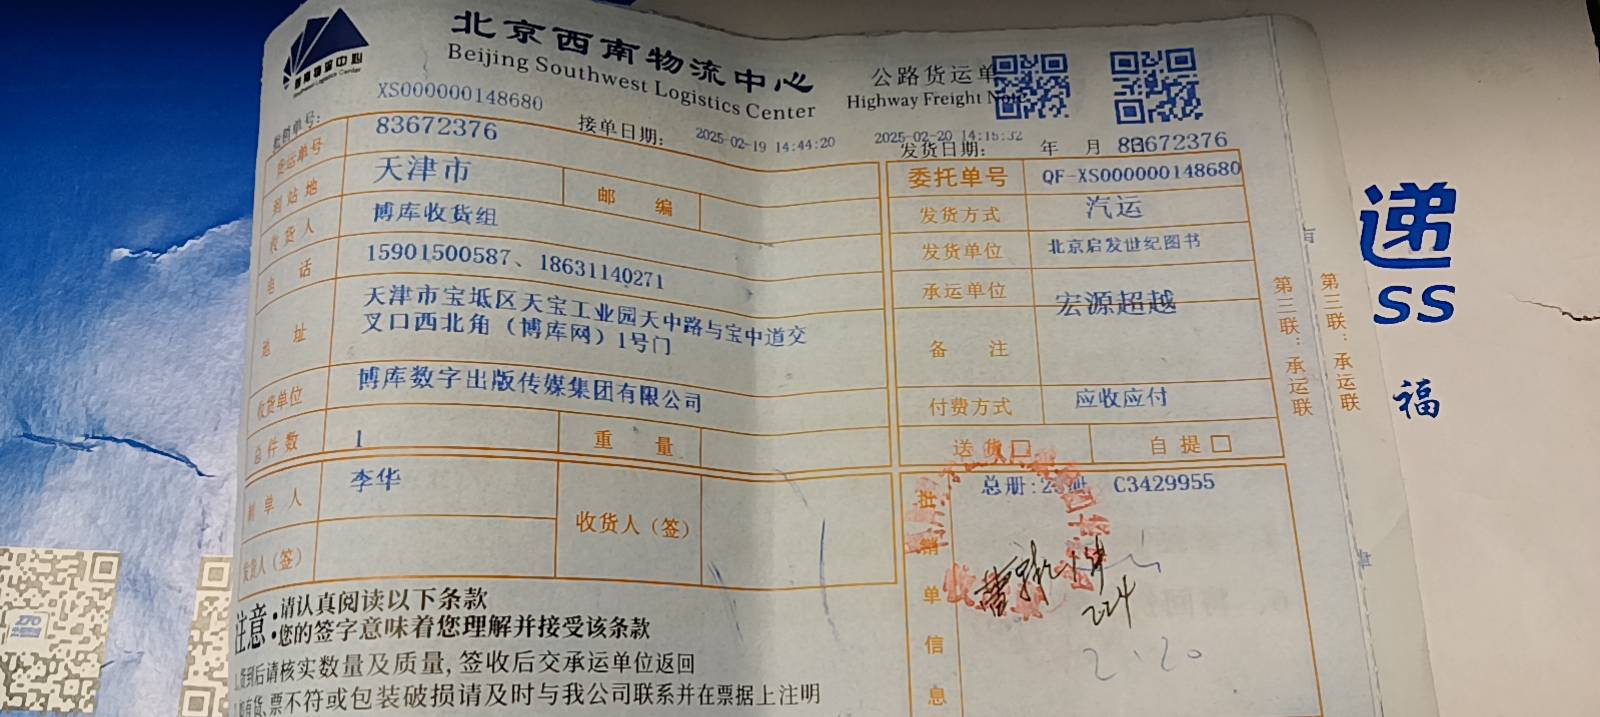 北京西南物流中心
Beijing Southwest Logistics Center
公路货运单
Highway Freight Note
西南物流中心
XS000000148680
批销单号:
接单日期: 2025-02-19 14:44:20
2025-02-20 14:15:32
发货日期: 年 月 日
83672376
货运单号 83672376
到站地 天津市 邮编
收货人 博库收货组
电话 15901500587、18631140271
地址 天津市宝坻区天宝工业园天中路与宝中道交
叉口西北角（博库网）1号门
收货单位 博库数字出版传媒集团有限公司
总件数 1 重量
制单人 李华
收货人（签）
发货人（签）
委托单号 QF-XS000000148680
发货方式 汽运
发货单位 北京启发世纪图书
承运单位 宏源超越
备注
付费方式 应收应付
送货□ 自提□
批销单信息
总册: C3429955
224
2.20
第三联：承运联
第三联：承运联
注意:
请认真阅读以下条款
您的签字意味着您理解并接受该条款
货到后请核实数量及质量,签收后交承运单位返回
如有货、票不符或包装破损请及时与我公司联系并在票据上注明
递
SS
福